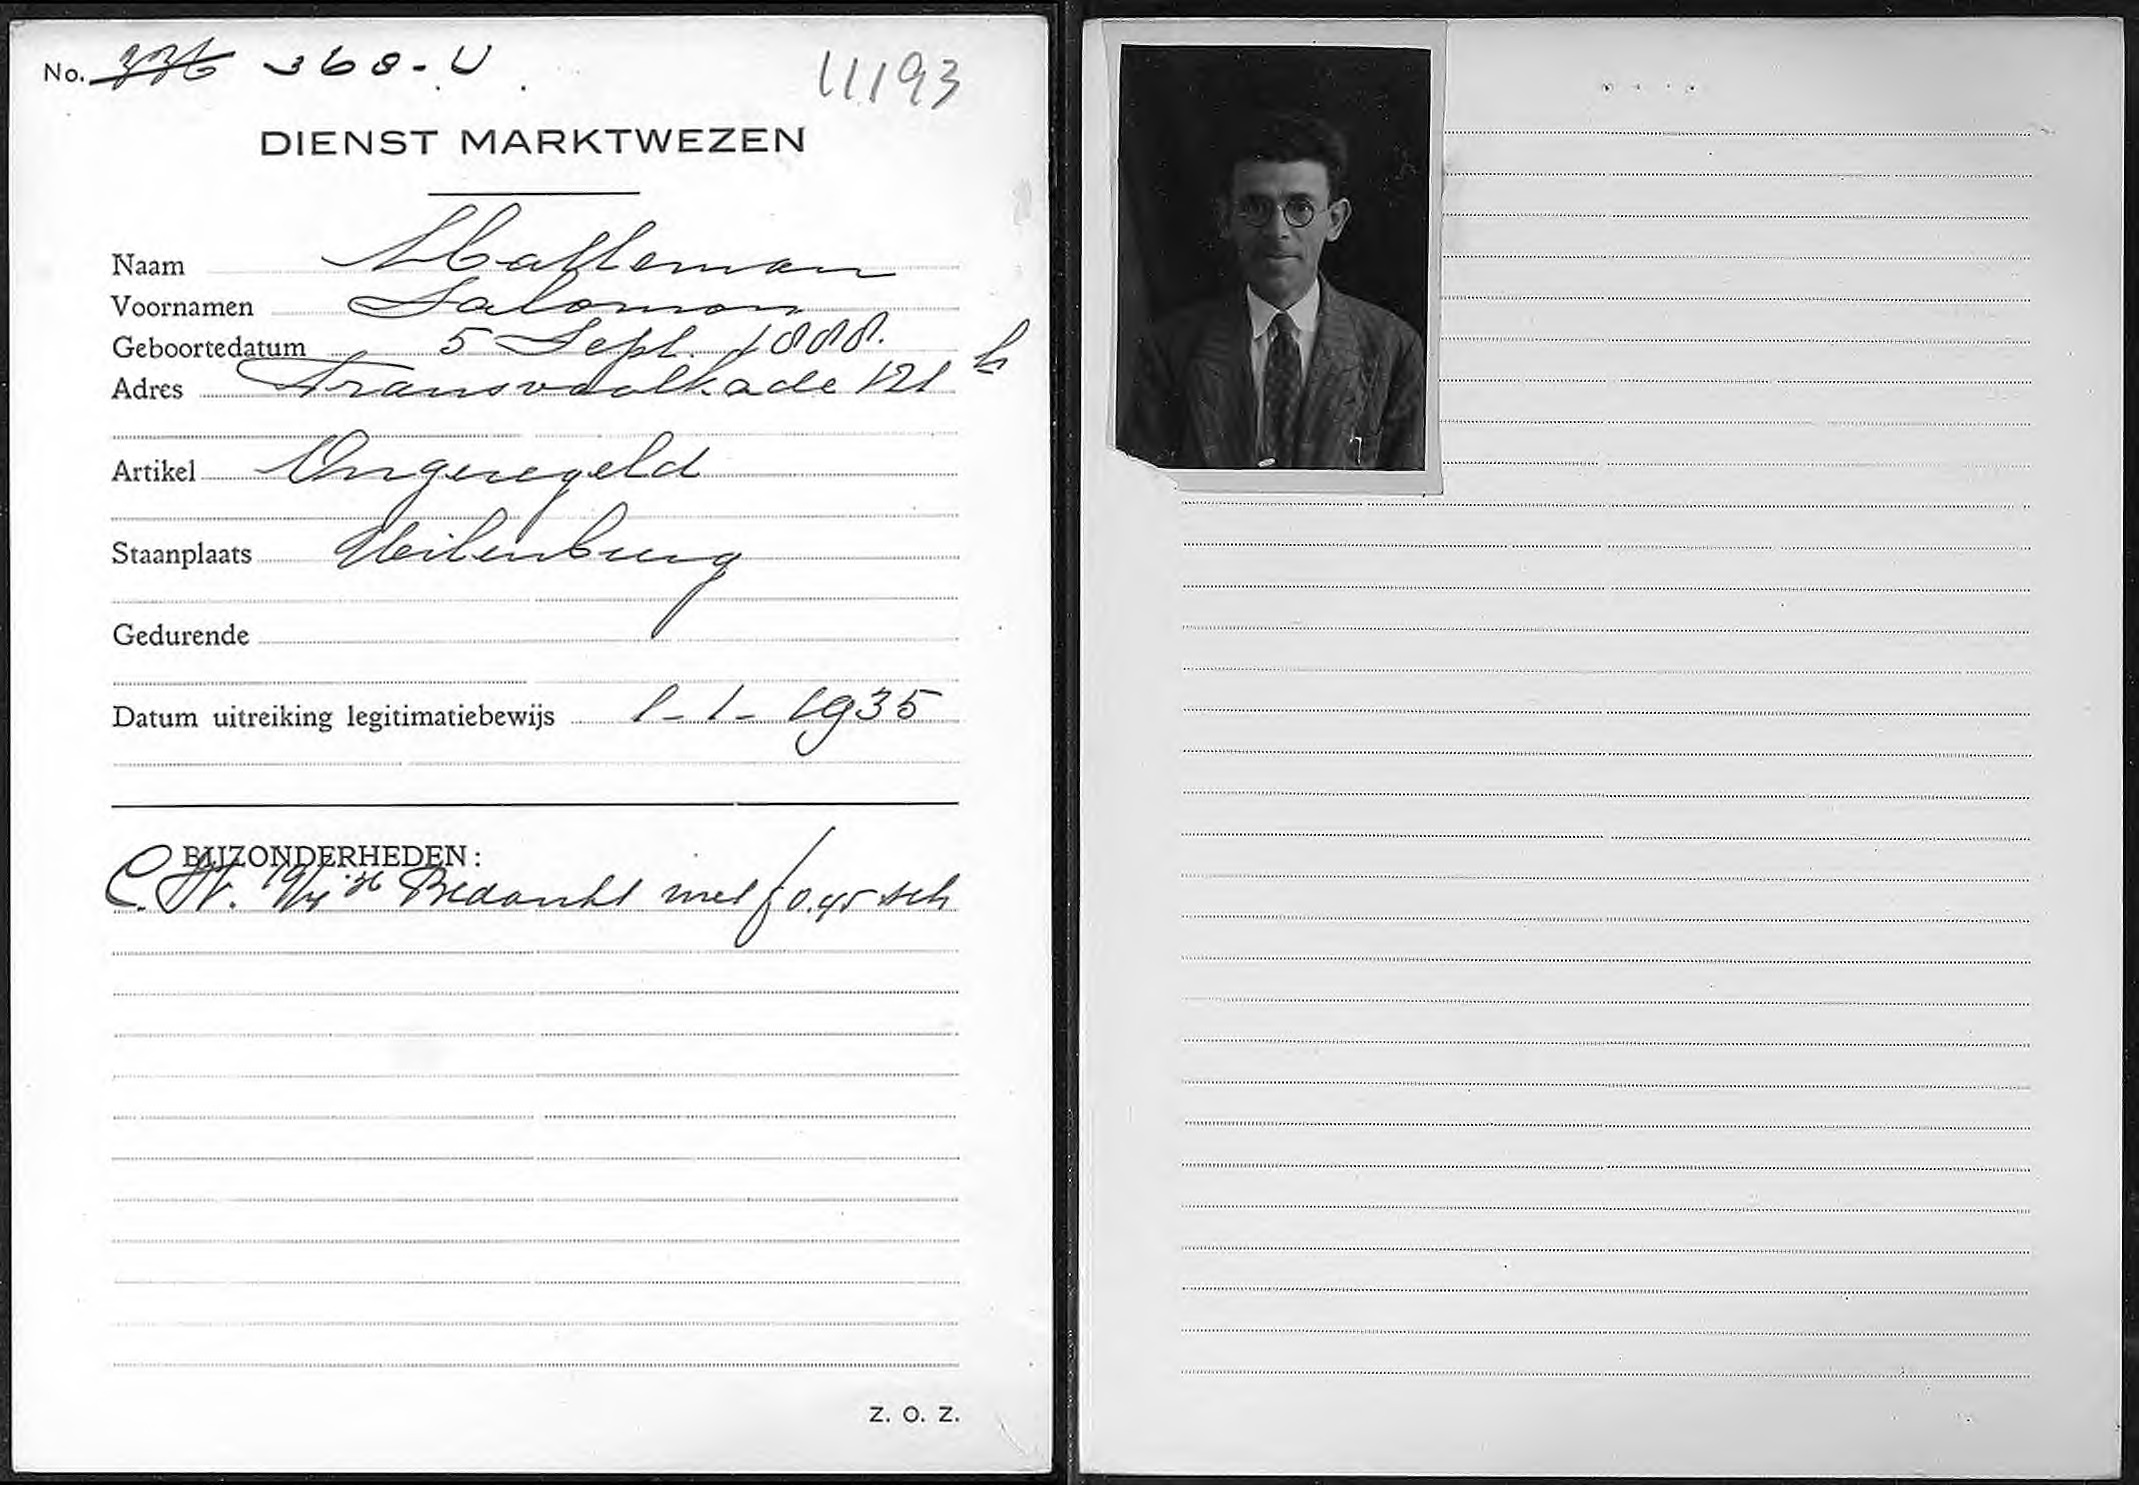 No. 336 368-U
11193
DIENST MARKTWEZEN
Naam
Voornamen Salomon
Geboortedatum 5 Sept. 1888.
Adres Transvaalkade 121 h
Artikel Ongeregeld
Staanplaats Uilenburg
Gedurende
Datum uitreiking legitimatiebewijs 1-1-1935
BIJZONDERHEDEN:
Bedankt met f 0.45 sch
Z. O. Z.